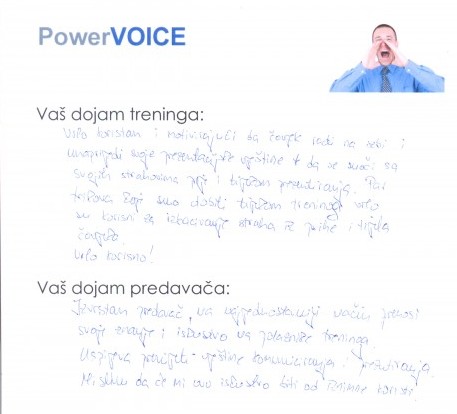 PowerVOICE
Vaš dojam treninga:
Vrlo koristan i motivirajući da čovjek radi na sebi i
unaprijedi svoje prezentacijske vještine + da se suoči sa
svojim strahovima prije i tijekom prezentiranja. Par
trikova koje smo dobili tijekom treninga vrlo
su korisni za izbacivanje straha iz psihe i tijela
čovjeka.
Vrlo korisno!
Vaš dojam predavača:
Izvrstan predavač, na najjednostavniji način prenosi
svoje znanje i iskustvo na polaznike treninga.
Uspijeva prenijeti vještine komuniciranja i prezentiranja.
Mislim da će mi ovo iskustvo biti od iznimne koristi.